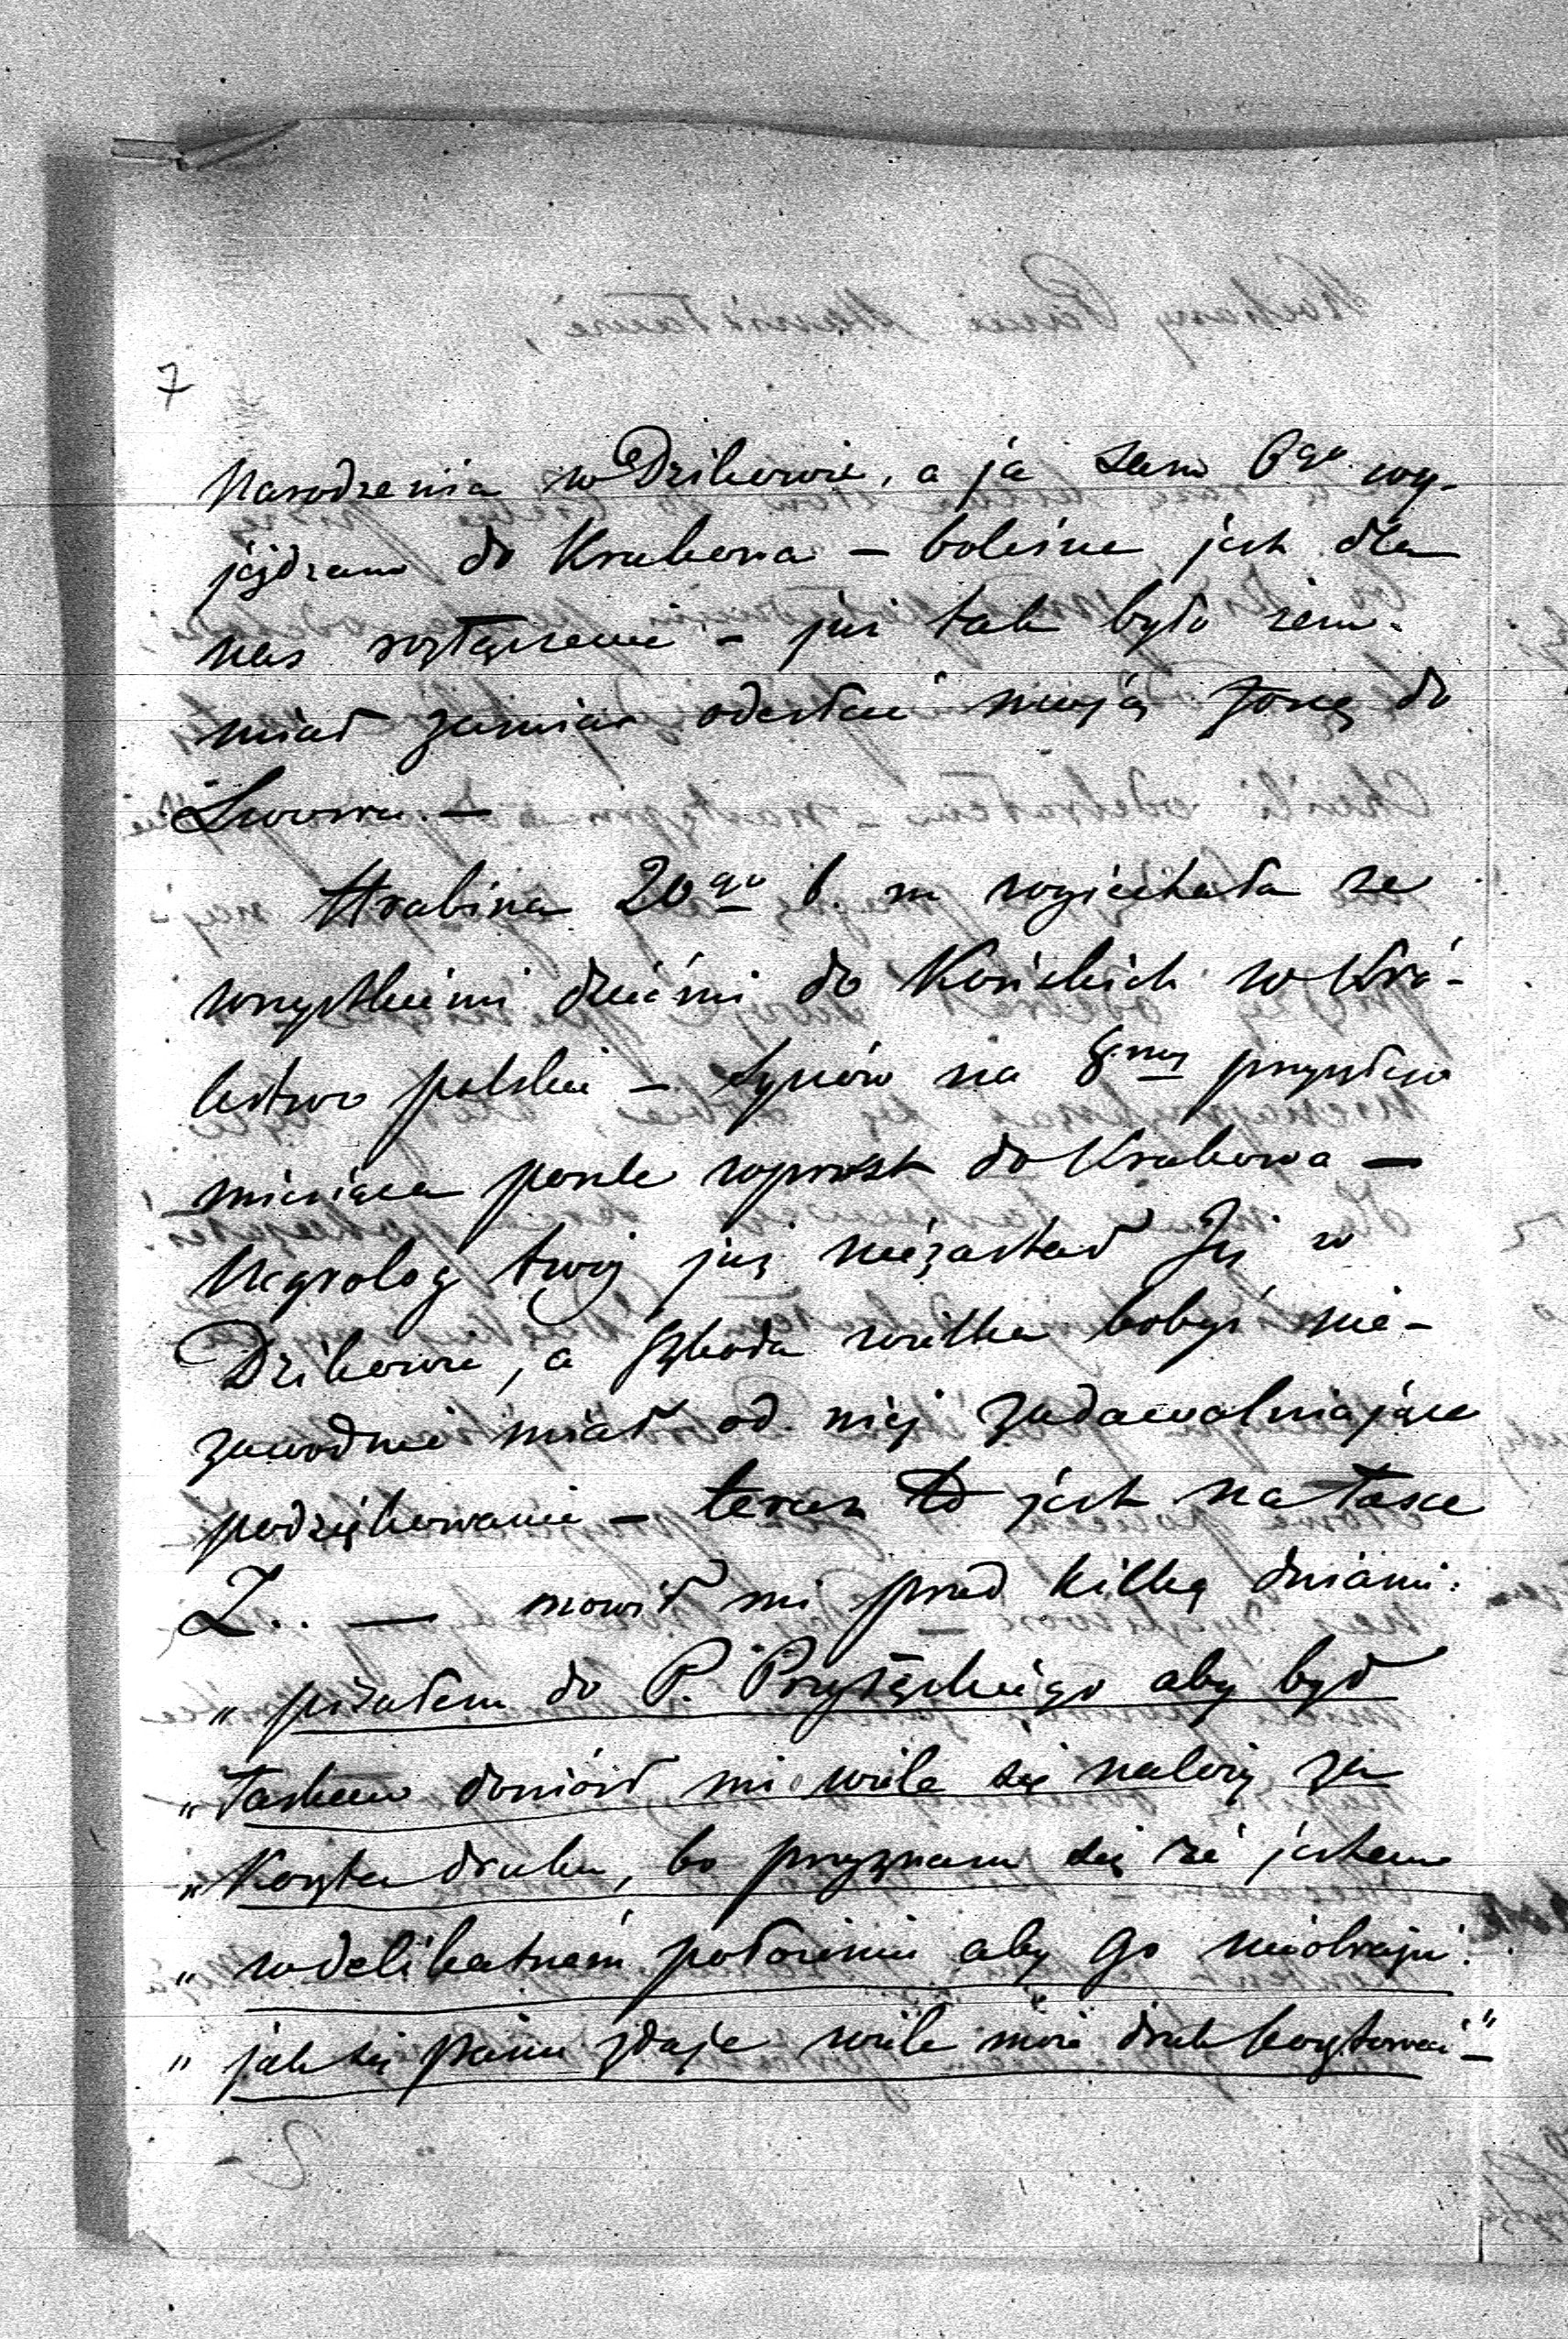 7
Narodzenia w Dzikowie, a ja sam 6go wy-
jeżdzam do Krakowa – boleśne jest dla
nas rozłączenie – już tak było żem
miał zamiar odesłać moją żonę do
Lwowa. –
Hrabina 20go b. m wyjechała ze
wszystkiemi dziećmi do Końskich w Kró-
lestwo polskie – synów na 8my przyszłego
miesiąca poszle wprost do Krakowa –
Negrolog twój już niezastał Jej w
Dzikowie, a szkoda wielka bobyś nie-
zawodnie miał od niej zadawalniające
podziękowanie – teraz to jest na łasce
Z.. — mowił mi przed kilką dniami:
„ pisałem do P. Przyłęckiego aby był
„ łaskaw doniósł mi wiele się należy za
„ koszta druku, bo przyznam się że jestem
„ w delikatnem położeniu aby go nieobrazić.
„ jak się panu zdaje wiele może druk kosztować" –